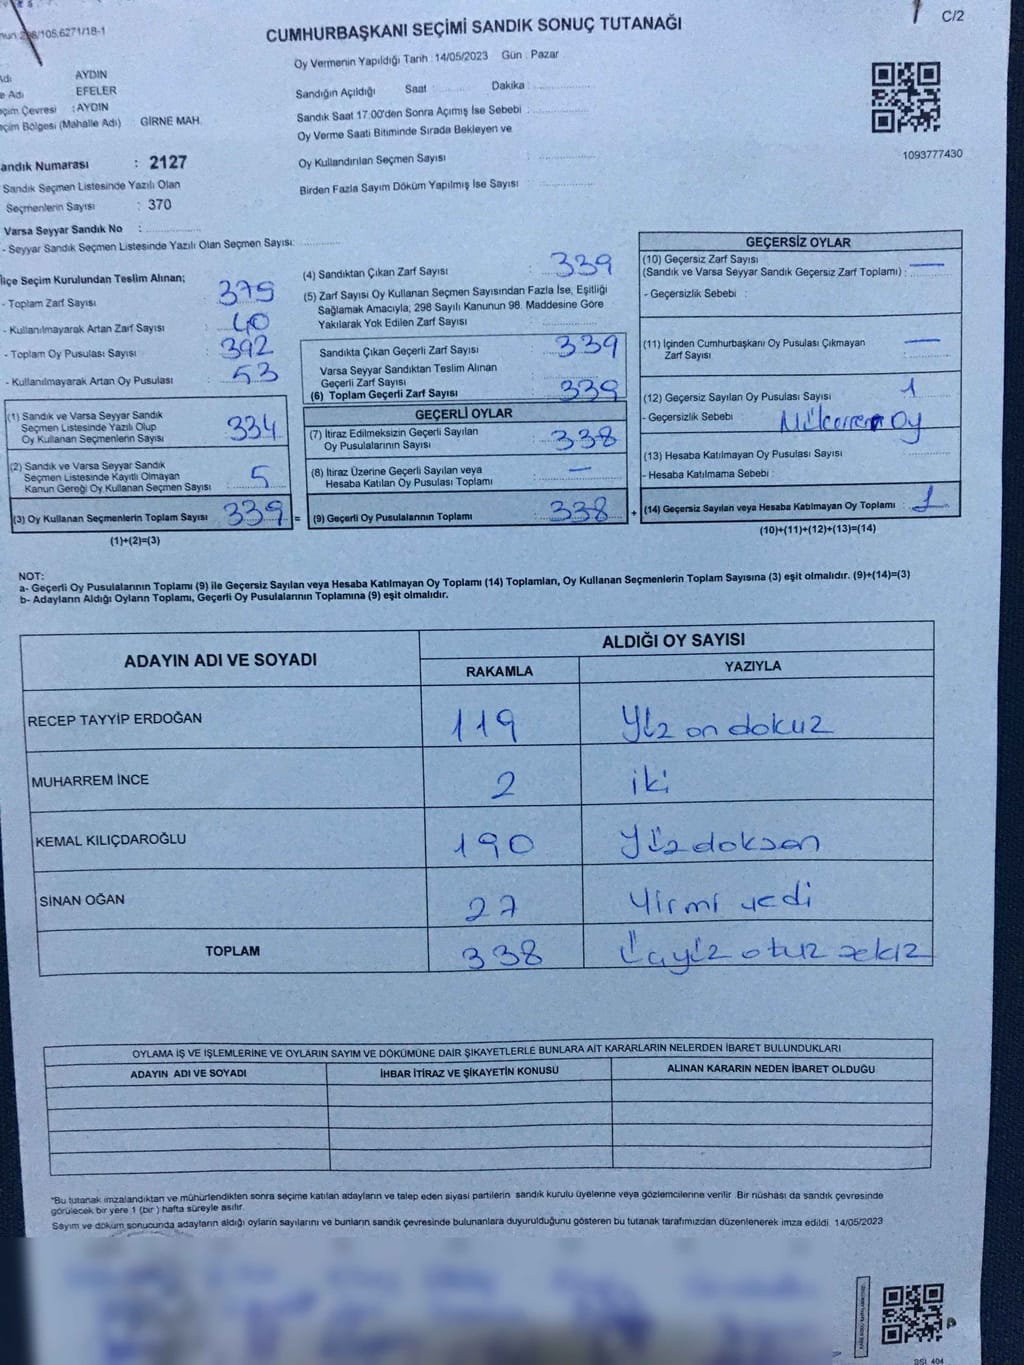 CUMHURBAŞKANI SEÇİMİ SANDIK SONUÇ TUTANAĞI
C/2
Oy Vermenin Yapıldığı Tarih : 14/05/2023 Gün : Pazar
AYDIN
EFELER
Sandığın Açıldığı Saat : Dakika :
: AYDIN
(Mahalle Adı) GİRNE MAH.
Sandık Saat 17:00'den Sonra Açımış İse Sebebi :
Oy Verme Saati Bitiminde Sırada Bekleyen ve
Oy Kullandırılan Seçmen Sayısı :
Birden Fazla Sayım Döküm Yapılmış İse Sayısı :
1093777430
andık Numarası : 2127
Sandık Seçmen Listesinde Yazılı Olan
Seçmenlerin Sayısı : 370
Varsa Seyyar Sandık No :
- Seyyar Sandık Seçmen Listesinde Yazılı Olan Seçmen Sayısı:
İlçe Seçim Kurulundan Teslim Alınan;
- Toplam Zarf Sayısı : 379
- Kullanılmayarak Artan Zarf Sayısı : 40
- Toplam Oy Pusulası Sayısı : 392
- Kullanılmayarak Artan Oy Pusulası : 53
(1) Sandık ve Varsa Seyyar Sandık
Seçmen Listesinde Yazılı Olup
Oy Kullanan Seçmenlerin Sayısı : 334
(2) Sandık ve Varsa Seyyar Sandık
Seçmen Listesinde Kayıtlı Olmayan
Kanun Gereği Oy Kullanan Seçmen Sayısı : 5
(3) Oy Kullanan Seçmenlerin Toplam Sayısı : 339 =
(1)+(2)=(3)
(4) Sandıktan Çıkan Zarf Sayısı : 339
(5) Zarf Sayısı Oy Kullanan Seçmen Sayısından Fazla İse, Eşitliği
Sağlamak Amacıyla, 298 Sayılı Kanunun 98. Maddesine Göre
Yakılarak Yok Edilen Zarf Sayısı :
Sandıkta Çıkan Geçerli Zarf Sayısı : 339
Varsa Seyyar Sandıktan Teslim Alınan
Geçerli Zarf Sayısı :
(6) Toplam Geçerli Zarf Sayısı : 339
GEÇERLİ OYLAR
(7) İtiraz Edilmeksizin Geçerli Sayılan
Oy Pusulalarının Sayısı : 338
(8) İtiraz Üzerine Geçerli Sayılan veya
Hesaba Katılan Oy Pusulası Toplamı : —
(9) Geçerli Oy Pusulalarının Toplamı : 338 +
GEÇERSİZ OYLAR
(10) Geçersiz Zarf Sayısı
(Sandık ve Varsa Seyyar Sandık Geçersiz Zarf Toplamı) : —
- Geçersizlik Sebebi :
(11) İçinden Cumhurbaşkanı Oy Pusulası Çıkmayan
Zarf Sayısı : —
(12) Geçersiz Sayılan Oy Pusulası Sayısı : 1
- Geçersizlik Sebebi : Mükerrer Oy
(13) Hesaba Katılmayan Oy Pusulası Sayısı :
- Hesaba Katılmama Sebebi :
(14) Geçersiz Sayılan veya Hesaba Katılmayan Oy Toplamı : 1
(10)+(11)+(12)+(13)=(14)
NOT:
a- Geçerli Oy Pusulalarının Toplamı (9) ile Geçersiz Sayılan veya Hesaba Katılmayan Oy Toplamı (14) Toplamları, Oy Kullanan Seçmenlerin Toplam Sayısına (3) eşit olmalıdır. (9)+(14)=(3)
b- Adayların Aldığı Oyların Toplamı, Geçerli Oy Pusulalarının Toplamına (9) eşit olmalıdır.
ADAYIN ADI VE SOYADI ALDIĞI OY SAYISI
RAKAMLA YAZIYLA
RECEP TAYYİP ERDOĞAN 119 Yüz on dokuz
MUHARREM İNCE 2 iki
KEMAL KILIÇDAROĞLU 190 Yüz doksan
SİNAN OĞAN 27 Yirmi yedi
TOPLAM 338 Üçyüz otuz sekiz
OYLAMA İŞ VE İŞLEMLERİNE VE OYLARIN SAYIM VE DÖKÜMÜNE DAİR ŞİKAYETLERLE BUNLARA AİT KARARLARIN NELERDEN İBARET BULUNDUKLARI
ADAYIN ADI VE SOYADI İHBAR İTİRAZ VE ŞİKAYETİN KONUSU ALINAN KARARIN NEDEN İBARET OLDUĞU
*Bu tutanak imzalandıktan ve mühürlendikten sonra seçime katılan adayların ve talep eden siyasi partilerin sandık kurulu üyelerine veya gözlemcilerine verilir. Bir nüshası da sandık çevresinde
görülecek bir yere 1 (bir ) hafta süreyle asılır.
Sayım ve döküm sonucunda adayların aldığı oyların sayılarını ve bunların sandık çevresinde bulunanlara duyurulduğunu gösteren bu tutanak tarafımızdan düzenlenerek imza edildi. 14/05/2023